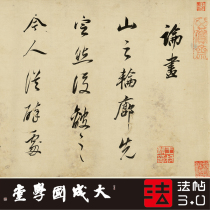 論畫
山之輪廓先
定然後皴之
今人從碎處
大成國學堂
法
法帖
3.0